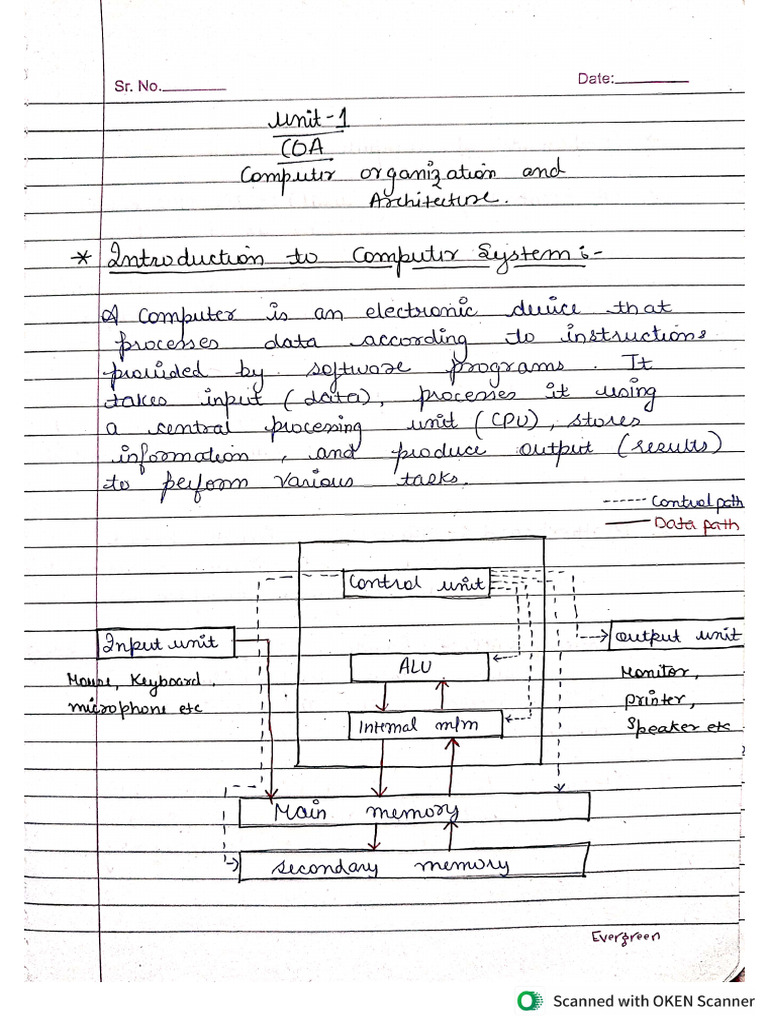 Sr. No.
Date:
Unit-1
COA
Computer organization and
Architecture.
* Introduction to Computer System :-
A computer is an electronic device that
processes data according to instructions
provided by software programs. It
takes input (data), processes it using
a central processing unit (CPU), stores
information, and produce output (results)
to perform various tasks.
Control path
Data path
Control unit
Input unit
output unit
Mouse, Keyboard,
microphone etc
ALU
Monitor,
printer,
Speaker etc
Internal m/m
Main memory
secondary memory
Evergreen
Scanned with OKEN Scanner